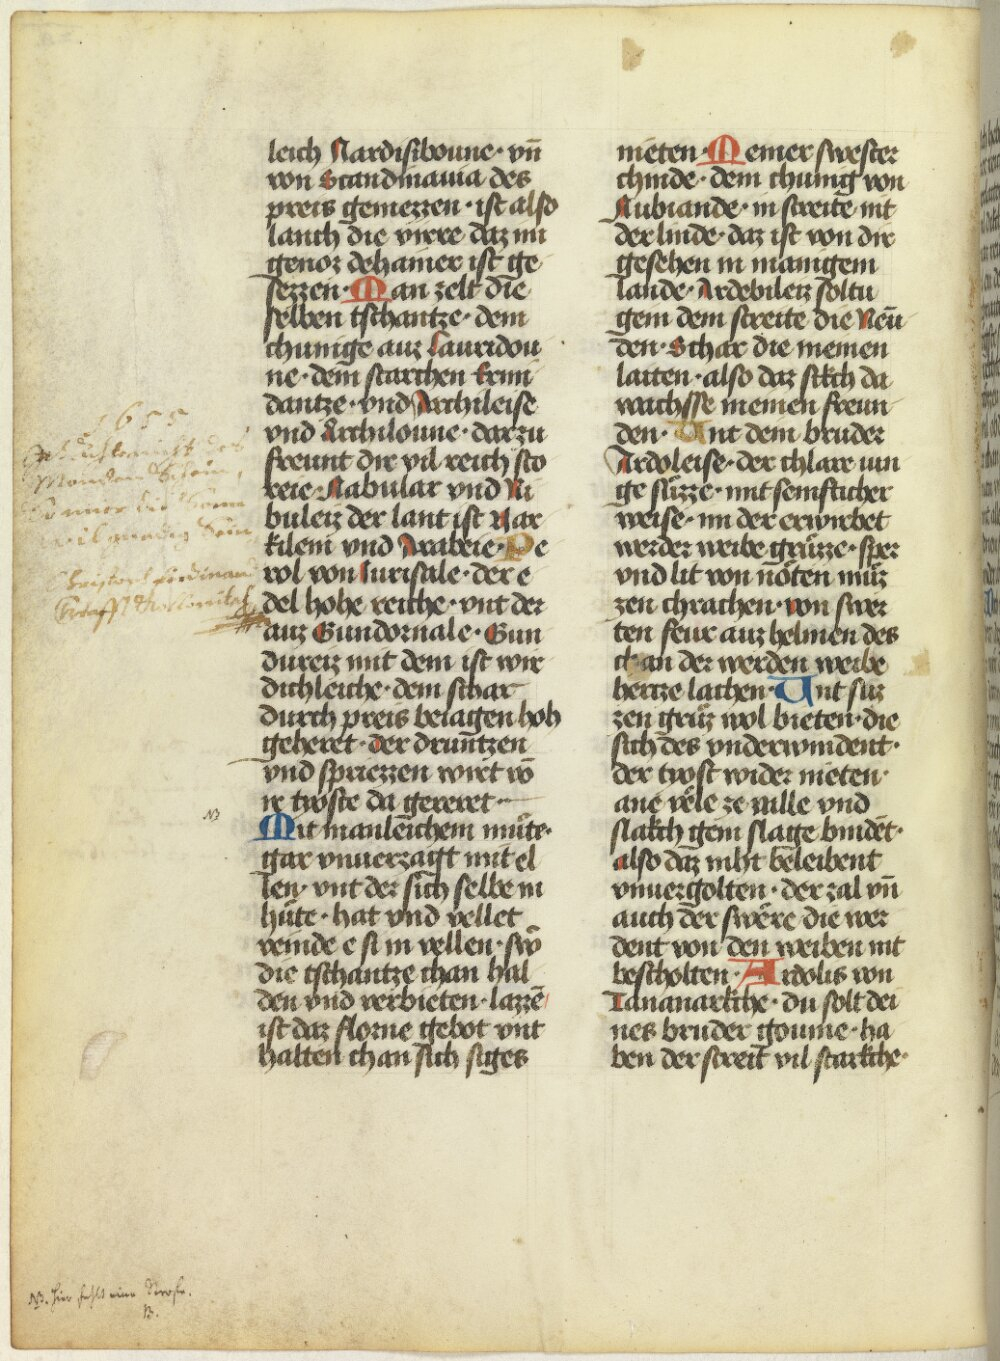 leich Nardisiboune · vn̄
von Scandinauia des
preis gemezzen · ist also
lanch die virre daz mi
genoz dehainer ist ge
sezzen · Man zelt die
selben tschantze · dem
chunige auz Lauridou
ne · dem starchen Ermi
dantze · vnd Archileise
vnd Archiloune · darzu
freunt dir vil reich sto
reie · Nabular vnd Ni
buleiz der lant ist Nar
kileni vnd Arabeie · Pe
rol von Iurisale · der e
del hohe reiche · vnt der
auz Gundornale · Gun
dureiz mit dem ist wir
dichleiche · dem schar
durch preis beiagen hoh
geheret · der druntzen
vnd spriezzen wirt vō
ir twste da gereret ·
Mit manleichem mute ·
gar vnuerzagt mit el
len · vnt der sich selbe in
hůte · hat vnd vellet
veinde e si in vellen · swo
die tschantze chan hal
den vnd verbieten · lazzē
ist daz florne gebot vnt
halten chan sich siges
nieten · Meiner swester
chinde · dem chunig von
Nubiande · in streite nit
der linde · daz ist von dir
gesehen in manigem
lande · Ardebileiz soltu
gein dem streite die Neun
den · Schar die meinen
laiten · also daz sich da
wachsse meinen freun
den · Vnt dem bruder
Ardoleise · der chlare iun
ge sůzze · mit senfticher
weise · im der erwirbet
werder weibe grůzze · sper
vnd lit von nöten můz
zen chrachen · von swer
ten feur auz helmen des
chan der werden weibe
hertze lachen · Vnt sůz
zen grůz wol bieten · die
sich des vnderwindent ·
der twst wider nieten ·
ane vële ze wille vnd
slakch gein slage bindet ·
also daz niht beleibent
vnuergolten · der zal vn̄
auch der swëre die wer
dent von den weiben nit
bescholten · Ardolis von
Tananarkche · du solt dei
nes bruder goume · ha
ben der streit vil starkche ·
1655
NB
NB. hier fehlt eine Strofe.
B.